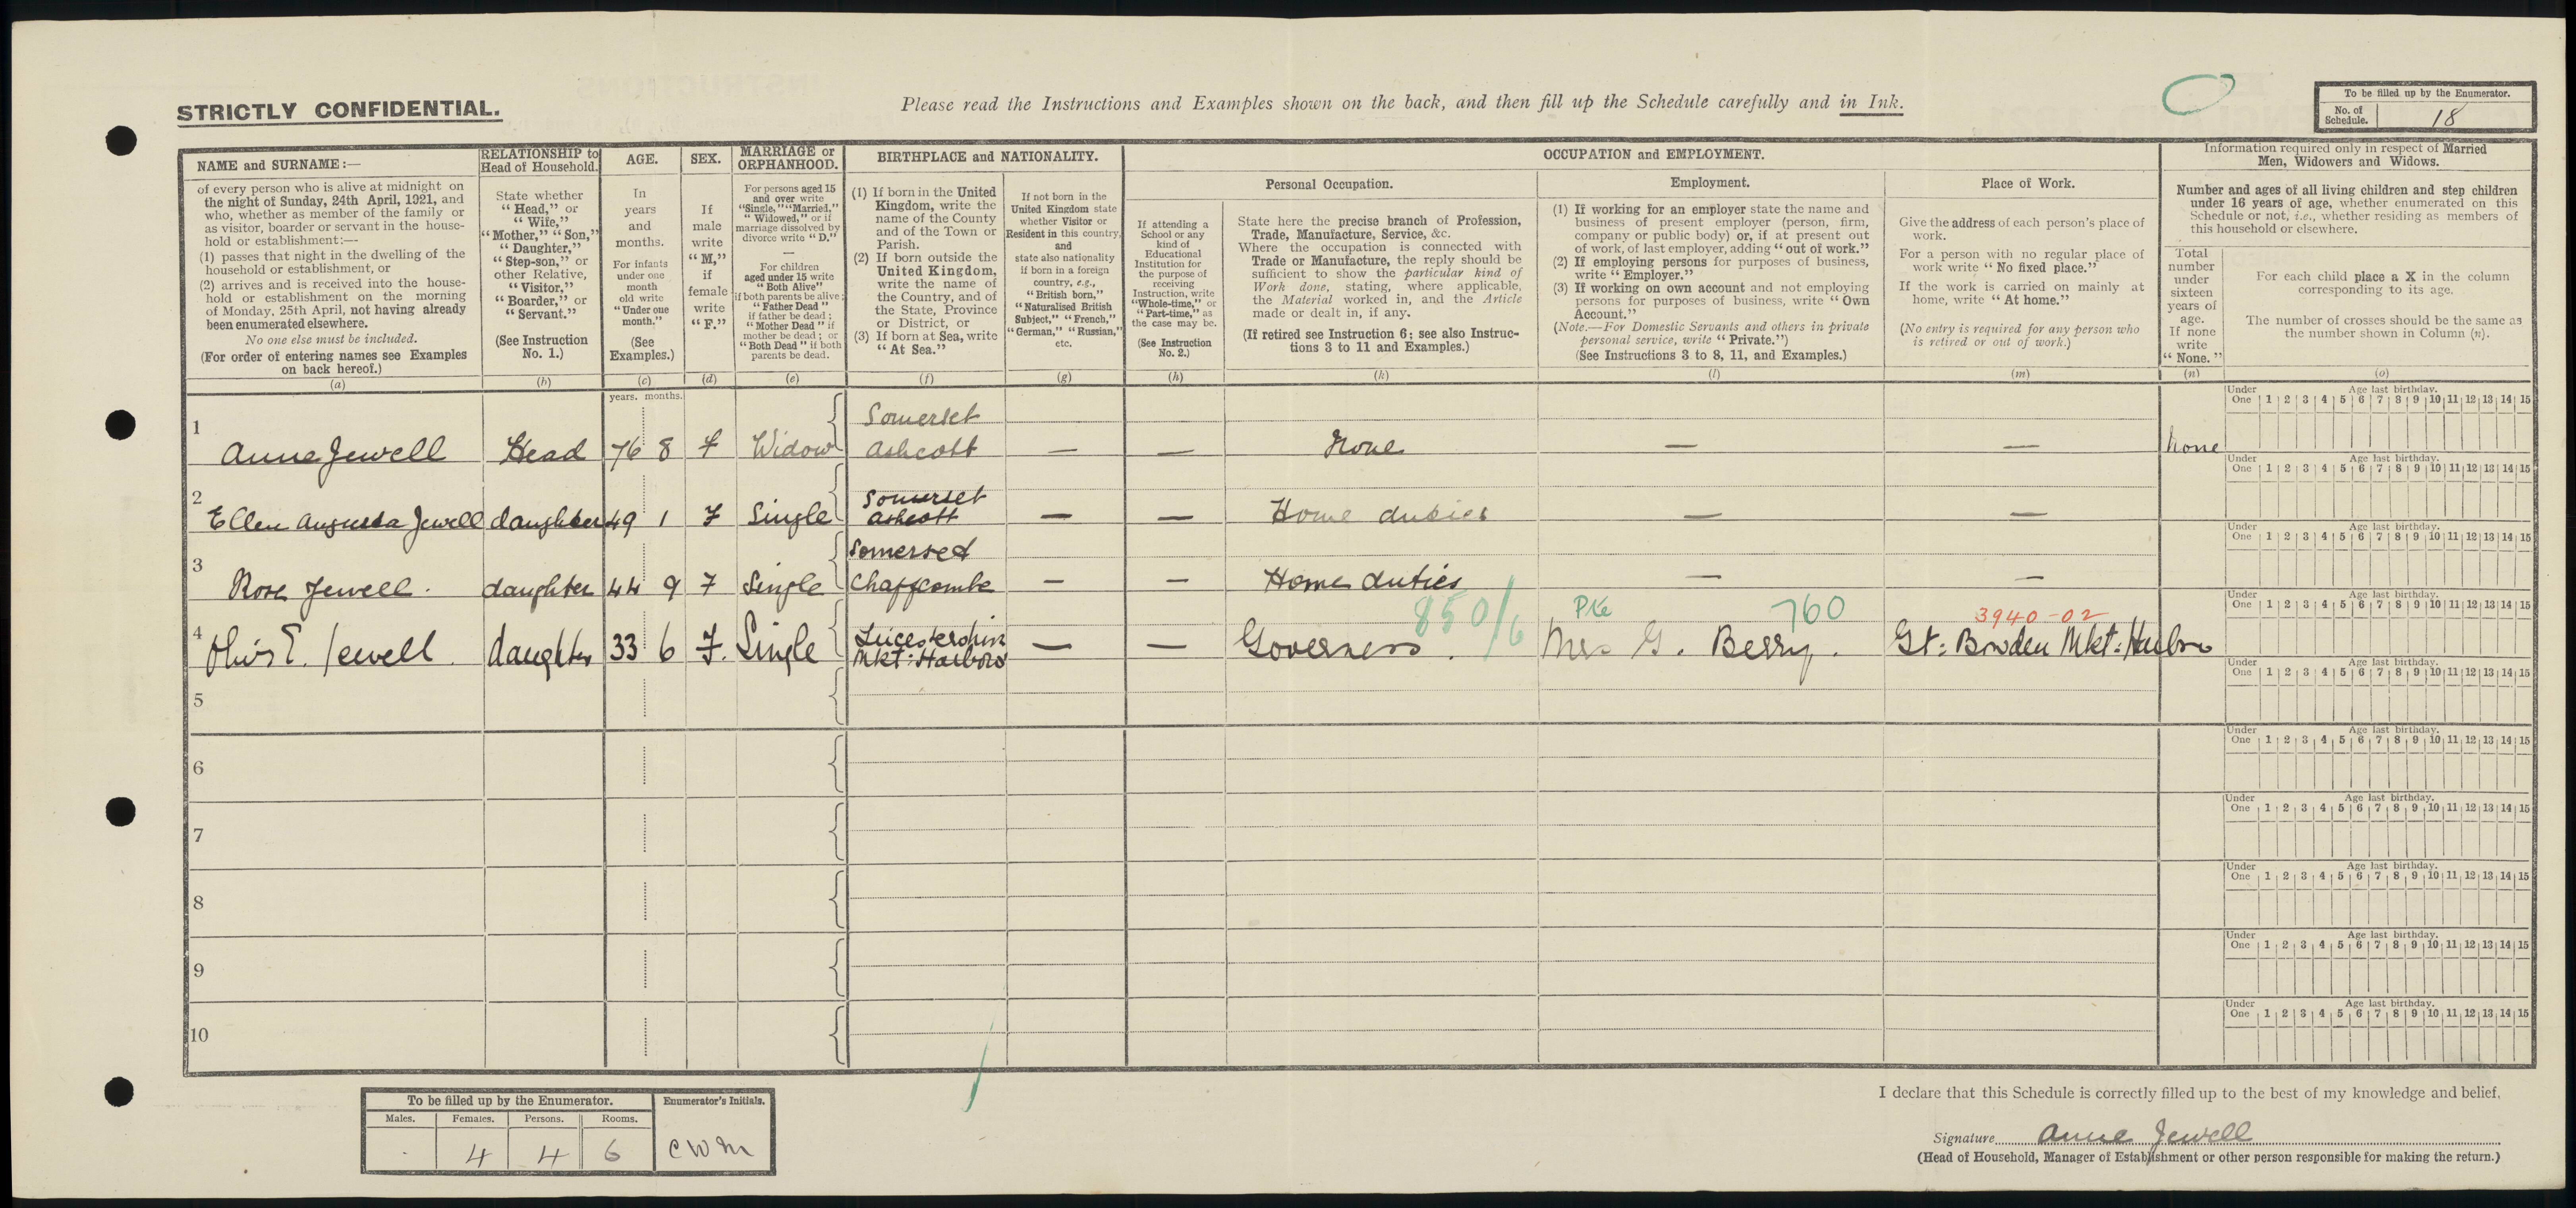 STRICTLY CONFIDENTIAL.
Please read the Instructions and Examples shown on the back, and then fill up the Schedule carefully and in Ink.
To be filled up by the Enumerator.
No. of Schedule. 18
NAME and SURNAME:—
of every person who is alive at midnight on
the night of Sunday, 24th April, 1921, and
who, whether as member of the family or
as visitor, boarder or servant in the house-
hold or establishment:—
(1) passes that night in the dwelling of the
household or establishment, or
(2) arrives and is received into the house-
hold or establishment on the morning
of Monday, 25th April, not having already
been enumerated elsewhere.
No one else must be included.
(For order of entering names see Examples
on back hereof.)
(a)
RELATIONSHIP to
Head of Household.
State whether
"Head," or
"Wife,"
"Mother," "Son,"
"Daughter,"
"Step-son," or
other Relative,
"Visitor,"
"Boarder," or
"Servant."
(See Instruction
No. 1.)
(b)
AGE.
In
years
and
months.
For infants
under one
month
old write
"Under one
month."
(See
Examples.)
(c)
SEX.
If
male
write
"M,"
if
female
write
"F."
(d)
MARRIAGE or
ORPHANHOOD.
For persons aged 15
and over write
"Single," "Married,"
"Widowed," or if
marriage dissolved by
divorce write "D."
—
For children
aged under 15 write
"Both Alive"
if both parents be alive;
"Father Dead"
if father be dead;
"Mother Dead" if
mother be dead; or
"Both Dead" if both
parents be dead.
(e)
BIRTHPLACE and NATIONALITY.
(1) If born in the United
Kingdom, write the
name of the County
and of the Town or
Parish.
(2) If born outside the
United Kingdom,
write the name of
the Country, and of
the State, Province
or District, or
(3) If born at Sea, write
"At Sea."
(f)
If not born in the
United Kingdom state
whether Visitor or
Resident in this country,
and
state also nationality
if born in a foreign
country, e.g.,
"British born,"
"Naturalised British
Subject," "French,"
"German," "Russian,"
etc.
(g)
OCCUPATION and EMPLOYMENT.
Personal Occupation.
If attending a
School or any
kind of
Educational
Institution for
the purpose of
receiving
Instruction, write
"Whole-time," or
"Part-time," as
the case may be.
(See Instruction
No. 2.)
(h)
State here the precise branch of Profession,
Trade, Manufacture, Service, &c.
Where the occupation is connected with
Trade or Manufacture, the reply should be
sufficient to show the particular kind of
Work done, stating, where applicable,
the Material worked in, and the Article
made or dealt in, if any.
(If retired see Instruction 6: see also Instruc-
tions 3 to 11 and Examples.)
(k)
Employment.
(1) If working for an employer state the name and
business of present employer (person, firm,
company or public body) or, if at present out
of work, of last employer, adding "out of work."
(2) If employing persons for purposes of business,
write "Employer."
(3) If working on own account and not employing
persons for purposes of business, write "Own
Account."
(Note.—For Domestic Servants and others in private
personal service, write "Private.")
(See Instructions 3 to 8, 11, and Examples.)
(l)
Place of Work.
Give the address of each person's place of
work.
For a person with no regular place of
work write "No fixed place."
If the work is carried on mainly at
home, write "At home."
(No entry is required for any person who
is retired or out of work.)
(m)
Information required only in respect of Married
Men, Widowers and Widows.
Number and ages of all living children and step children
under 16 years of age, whether enumerated on this
Schedule or not, i.e., whether residing as members of
this household or elsewhere.
Total
number
under
sixteen
years of
age.
If none
write
"None."
(n)
For each child place a X in the column
corresponding to its age.
The number of crosses should be the same as
the number shown in Column (n).
(o)
years. months.
Under One Age last birthday. 1 2 3 4 5 6 7 8 9 10 11 12 13 14 15
1 Anne Jewell Head 76 8 F Widow Somerset Ashcott — — None — — None
Under One Age last birthday. 1 2 3 4 5 6 7 8 9 10 11 12 13 14 15
2 Ellen Augusta Jewell daughter 49 1 F Single Somerset Ashcott — — Home duties — —
Under One Age last birthday. 1 2 3 4 5 6 7 8 9 10 11 12 13 14 15
3 Rose Jewell. daughter 44 9 F Single Somerset Chaffcombe — — Home duties — —
Under One Age last birthday. 1 2 3 4 5 6 7 8 9 10 11 12 13 14 15
850/6 PKe 760 3940-02
4 Olive E. Jewell. daughter 33 6 F. Single Leicestershire Mkt: Harboro — — Governess. Mrs G. Berry. Gt: Bowden Mkt: Harboro
Under One Age last birthday. 1 2 3 4 5 6 7 8 9 10 11 12 13 14 15
5
Under One Age last birthday. 1 2 3 4 5 6 7 8 9 10 11 12 13 14 15
6
Under One Age last birthday. 1 2 3 4 5 6 7 8 9 10 11 12 13 14 15
7
Under One Age last birthday. 1 2 3 4 5 6 7 8 9 10 11 12 13 14 15
8
Under One Age last birthday. 1 2 3 4 5 6 7 8 9 10 11 12 13 14 15
9
Under One Age last birthday. 1 2 3 4 5 6 7 8 9 10 11 12 13 14 15
10
To be filled up by the Enumerator. Enumerator's Initials.
Males. Females. Persons. Rooms.
4 4 6 CWM
I declare that this Schedule is correctly filled up to the best of my knowledge and belief.
Signature Anne Jewell
(Head of Household, Manager of Establishment or other person responsible for making the return.)